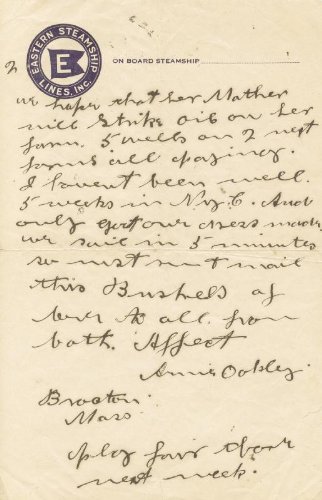 EASTERN STEAMSHIP
LINES, INC.
E
ON BOARD STEAMSHIP
2
we hope that her Mother
will strike oil on her
farm. 5 wells on 2 next
farms all paying.
I havent been well.
5 weeks in N.Y.C. And
only got our dress made
we sail in 5 minutes
so must mail
this Bushels of
love to all from
both. Affect
Annie Oakley.
Brocton
Mass
play fair there
next week.